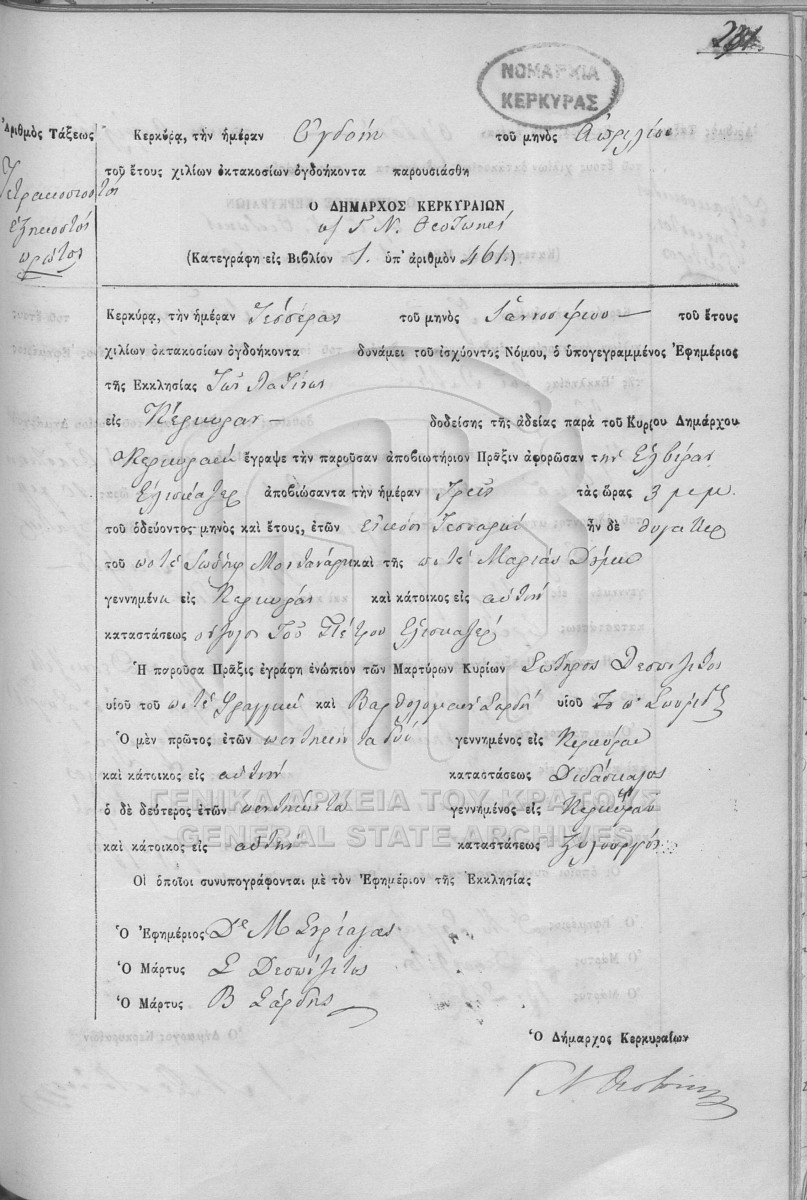 231
ΝΟΜΑΡΧΙΑ
ΚΕΡΚΥΡΑΣ
Ἀριθμὸς Τάξεως
Τετρακοσιοστὸς
ἑξηκοστὸς
πρῶτος
Κερκύρᾳ, τὴν ἡμέραν Ὀγδόην τοῦ μηνὸς Ἀπριλίου
τοῦ ἔτους χιλίων ὀκτακοσίων ὀγδοήκοντα παρουσιάσθη
Ο ΔΗΜΑΡΧΟΣ ΚΕΡΚΥΡΑΙΩΝ
Γ. Ν. Θεοτόκης
(Κατεγράφη εἰς Βιβλίον 1. ὑπ' ἀριθμὸν 461.)
Κερκύρᾳ, τὴν ἡμέραν Τέσσερας τοῦ μηνὸς Ἰανουαρίου τοῦ ἔτους
χιλίων ὀκτακοσίων ὀγδοήκοντα δυνάμει τοῦ ἰσχύοντος Νόμου, ὁ ὑπογεγραμμένος Ἐφημέριος
τῆς Ἐκκλησίας Τῶν Λατίνων
εἰς Κέρκυραν δοδείσης τῆς ἀδείας παρὰ τοῦ Κυρίου Δημάρχου
Κερκυραίων ἔγραψε τὴν παροῦσαν ἀποβιωτήριον Πρᾶξιν ἀφορῶσαν τὴν Ἐλβίραν
Ἐλισκάζερ ἀποβιώσαντα τὴν ἡμέραν Τρεῖς τὰς ὥρας 3 μ.μ.
τοῦ ὁδεύοντος μηνὸς καὶ ἔτους, ἐτῶν εἴκοσι τεσσάρων ἦν δὲ θυγάτηρ
τοῦ ποτὲ Ἰωσὴφ Μοντανάρη καὶ τῆς ποτὲ Μαρίας
γεννημένα εἰς Κέρκυραν καὶ κάτοικος εἰς αὐτὴν
καταστάσεως σύζυγος τοῦ Πέτρου Ἐλισκάζερ
Ἡ παροῦσα Πρᾶξις ἐγράφη ἐνώπιον τῶν Μαρτύρων Κυρίων Σωτῆρος Δεσπίλιτος
υἱοῦ τοῦ ποτὲ Φραγκ. καὶ Βαρθολομαίου Σαρδῆ υἱοῦ τοῦ π. Σπυρίδ.
Ὁ μὲν πρῶτος ἐτῶν πενῆντα δύο γεννημένος εἰς Κέρκυραν
καὶ κάτοικος εἰς αὐτὴν καταστάσεως Διδάσκαλος
ὁ δὲ δεύτερος ἐτῶν πενῆντα γεννημένος εἰς Κέρκυραν
καὶ κάτοικος εἰς αὐτὴν καταστάσεως Ξυλουργός
ΓΕΝΙΚΑ ΑΡΧΕΙΑ ΤΟΥ ΚΡΑΤΟΥΣ
GENERAL STATE ARCHIVES
Οἱ ὁποῖοι συνυπογράφονται μὲ τὸν Ἐφημέριον τῆς Ἐκκλησίας
Ὁ Ἐφημέριος Dr Μ
Ὁ Μάρτυς Σ Δεσπίλιτος
Ὁ Μάρτυς Β Σάρδης
Ὁ Δήμαρχος Κερκυραίων
Γ. Ν. Θεοτόκης